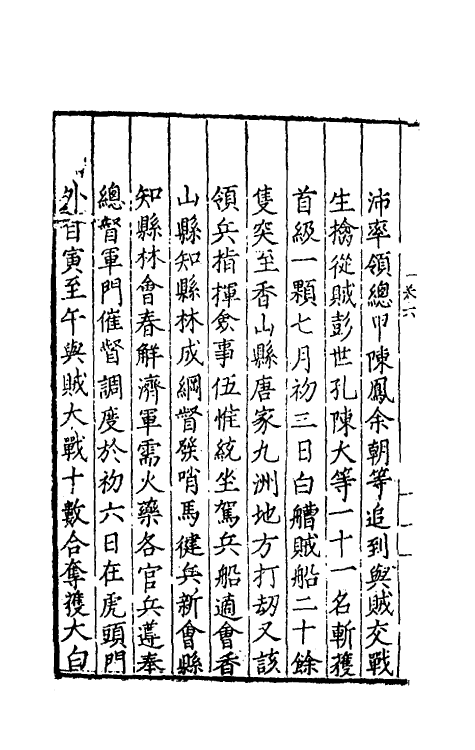 沛率領總甲陳鳳余朝等追到與賊交戰
生擒從賊彭世孔陳大等一十一名斬獲
首級一顆七月初三日白艚賊船二十餘
隻突至香山縣唐家九洲地方打刼又該
領兵指揮僉事伍惟統坐駕兵船適會香
山縣知縣林成綱督發哨馬健兵新會縣
知縣林會春觧濟軍需火藥各官兵遵奉
總督軍門催督調度於初六日在虎頭門
外自寅至午與賊大戰十數合奪獲大白
卷六